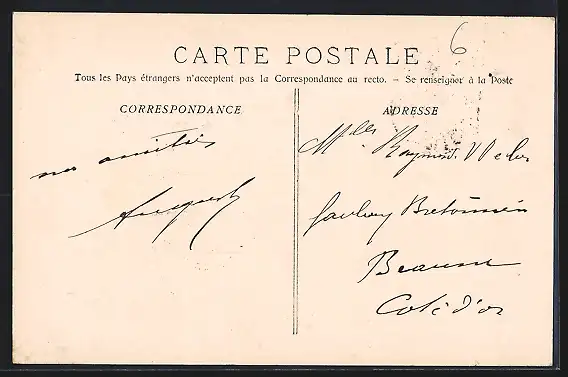 6
CARTE POSTALE
Tous les Pays étrangers n'acceptent pas la Correspondance au recto. — Se renseigner à la Poste
CORRESPONDANCE
ADRESSE
Mlles Raymond
nos amitiés
Faubourg Bretonnière
Beaune
Côte d'or